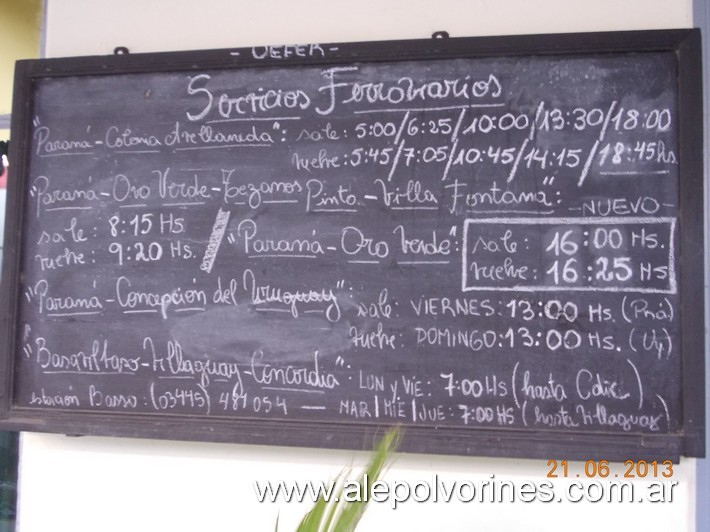 - UEFER -
Servicios Ferroviarios
"Paraná-Colonia Avellaneda": sale: 5:00/6:25/10:00/13:30/18:00
vuelve: 5:45/7:05/10:45/14:15/18:45hs
"Paraná-Oro Verde-Tezanos Pinto-Villa Fontana":
sale: 8:15 HS
vuelve: 9:20 HS.
- NUEVO -
"Paraná-Oro Verde": sale: 16:00 HS.
vuelve: 16:25 HS
"Paraná-Concepción del Uruguay" sale: VIERNES: 13:00 HS. (Pná)
vuelve: DOMINGO: 13:00 HS. (Uy)
"Basavilbaso-Villaguay-Concordia": LUN y VIE: 7:00 HS (hasta Cdia)
estación Basso: (03445) 481054 — MAR/MIE/JUE: 7:00 HS (hasta Villaguay)
21.06.2013
www.alepolvorines.com.ar